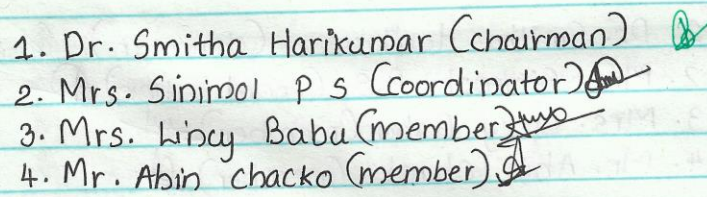 1. Dr. Smitha Harikumar (chairman)
2. Mrs. Sinimol P S (coordinator)
3. Mrs. Lincy Babu (member)
4. Mr. Abin chacko (member)